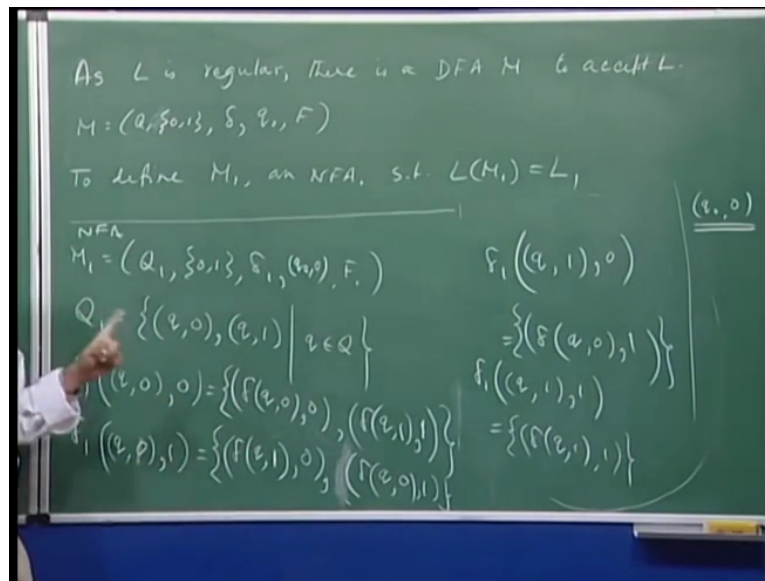 As L is regular, there is a DFA M to accept L.
M = (Q, {0,1}, δ, q₀, F)
To define M₁, an NFA, s.t. L(M₁) = L₁
NFA
M₁ = (Q₁, {0,1}, δ₁, (q₀,0), F₁)
Q₁ {(q,0), (q,1) | q ∈ Q}
((q,0),0) = {(δ(q,0),0), (δ(q,1),1)}
((q,0),1) = {(δ(q,1),0), (δ(q,0),1)}
δ₁((q,1),0)
= {(δ(q,0),1)}
δ₁((q,1),1)
= {(δ(q,1),1)}
(q₀,0)